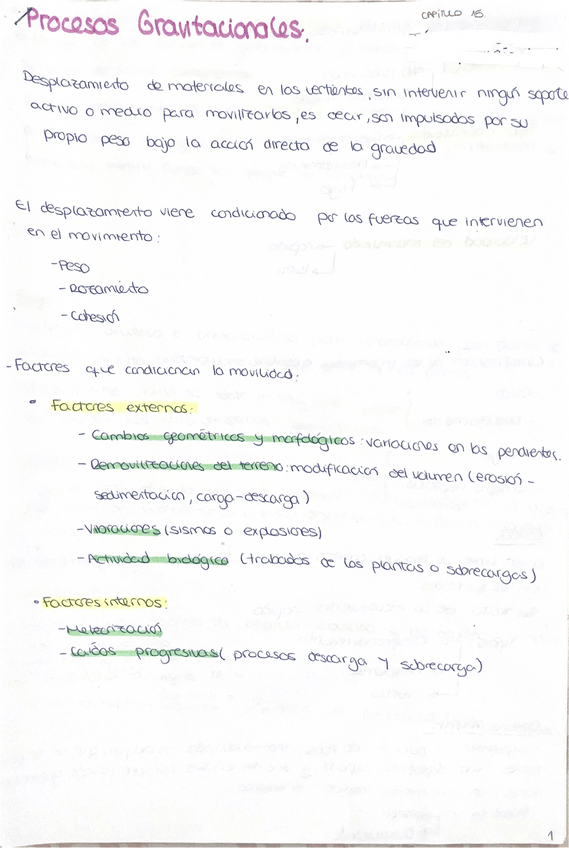 Procesos Gravitacionales.
CAPÍTULO 15.
Desplazamiento de materiales en las vertientes, sin intervenir ningún soporte
activo o medio para movilizarlos, es decir, son impulsados por su
propio peso bajo la acción directa de la gravedad
El desplazamiento viene condicionado por las fuerzas que intervienen
en el movimiento:
-Peso
- Rozamiento
- Cohesión
- Factores que condicionan la movilidad:
• Factores externos:
- Cambios geométricos y morfológicos: variaciones en las pendientes.
- Removilizaciones del terreno: modificación del volumen (erosión -
sedimentación, carga-descarga)
-Vibraciones (sismos o explosiones)
- Actividad biológica (trabados de las plantas o sobrecargas)
• Factores internos:
-Meteorización
- Caídas progresivas (procesos descarga y sobrecarga)
1